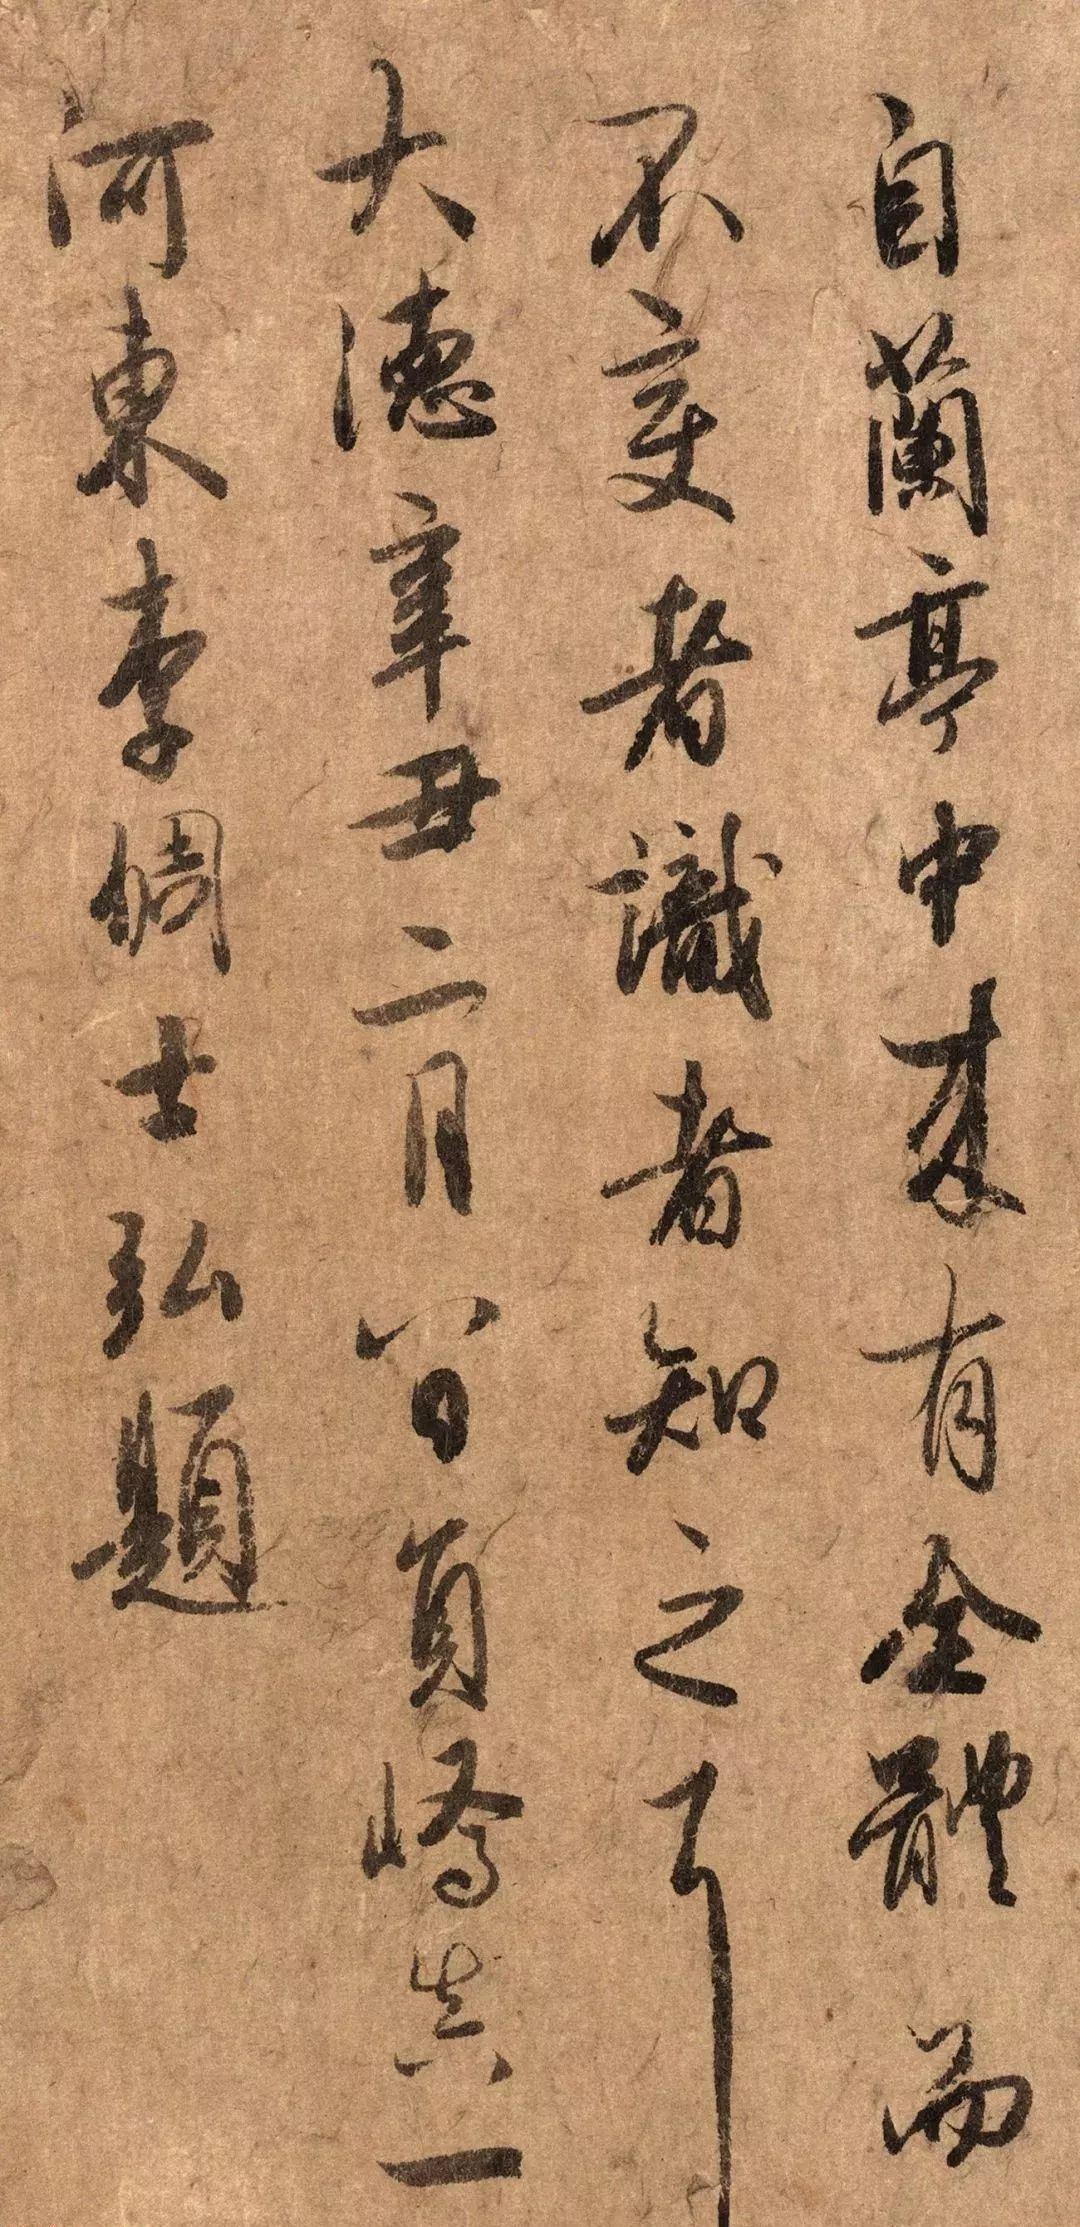 自蘭亭中來有全體而
不變者識者知之耳
大德辛丑二月八日員嶠真一
河東李倜士弘題